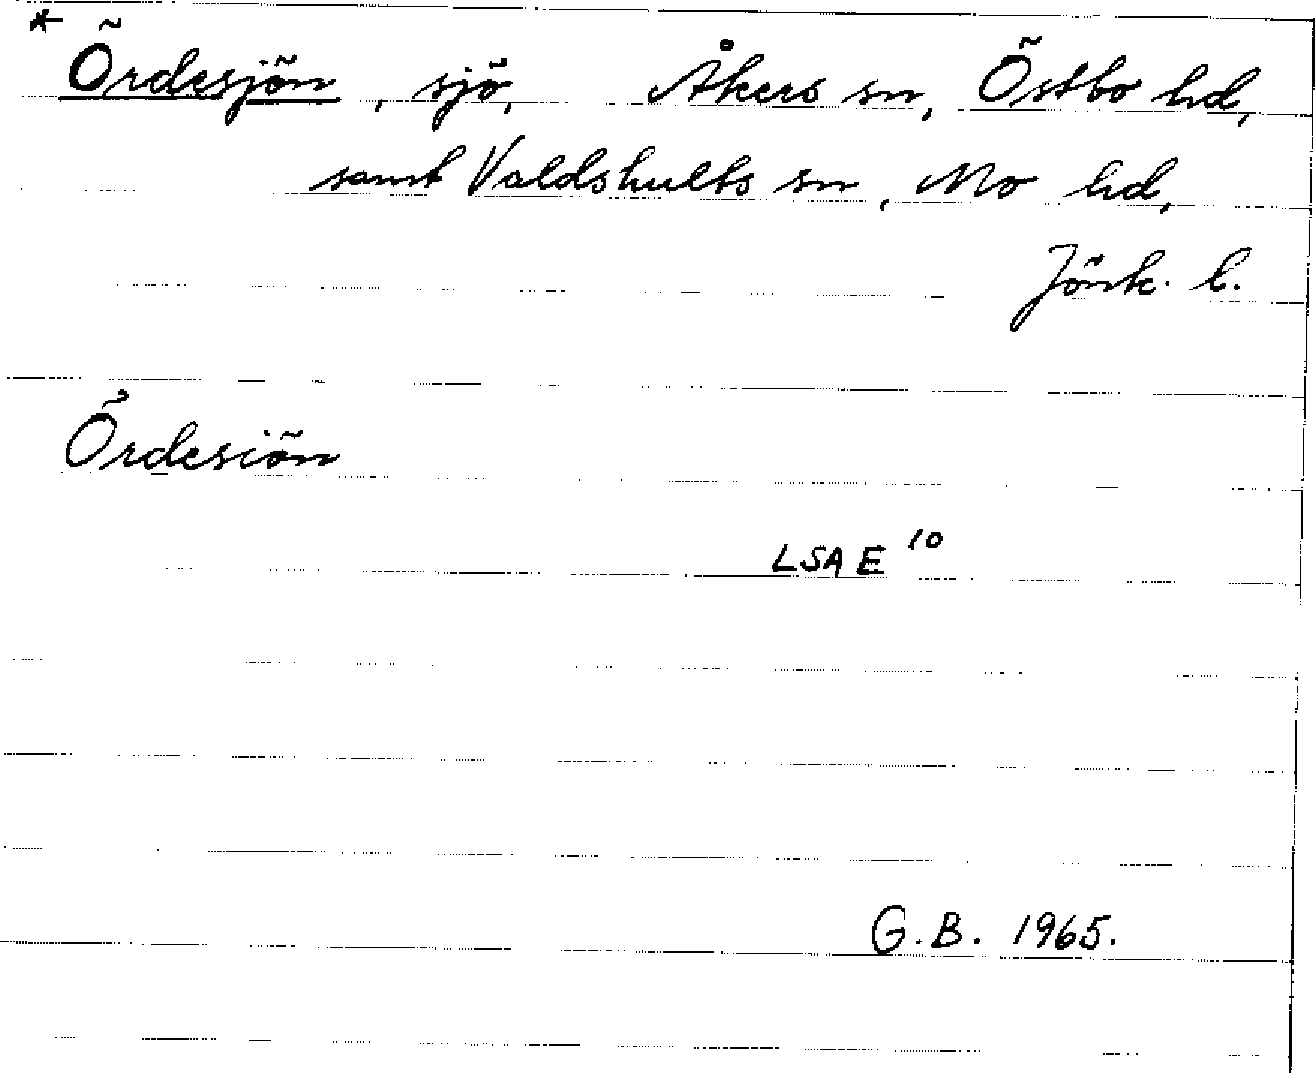 * Ördesjön, sjö, Åkers sn, Östbo hd,
samt Valdshults sn, Mo hd,
Jönk. l.
Ördesiön
LSA E 10
G.B. 1965.